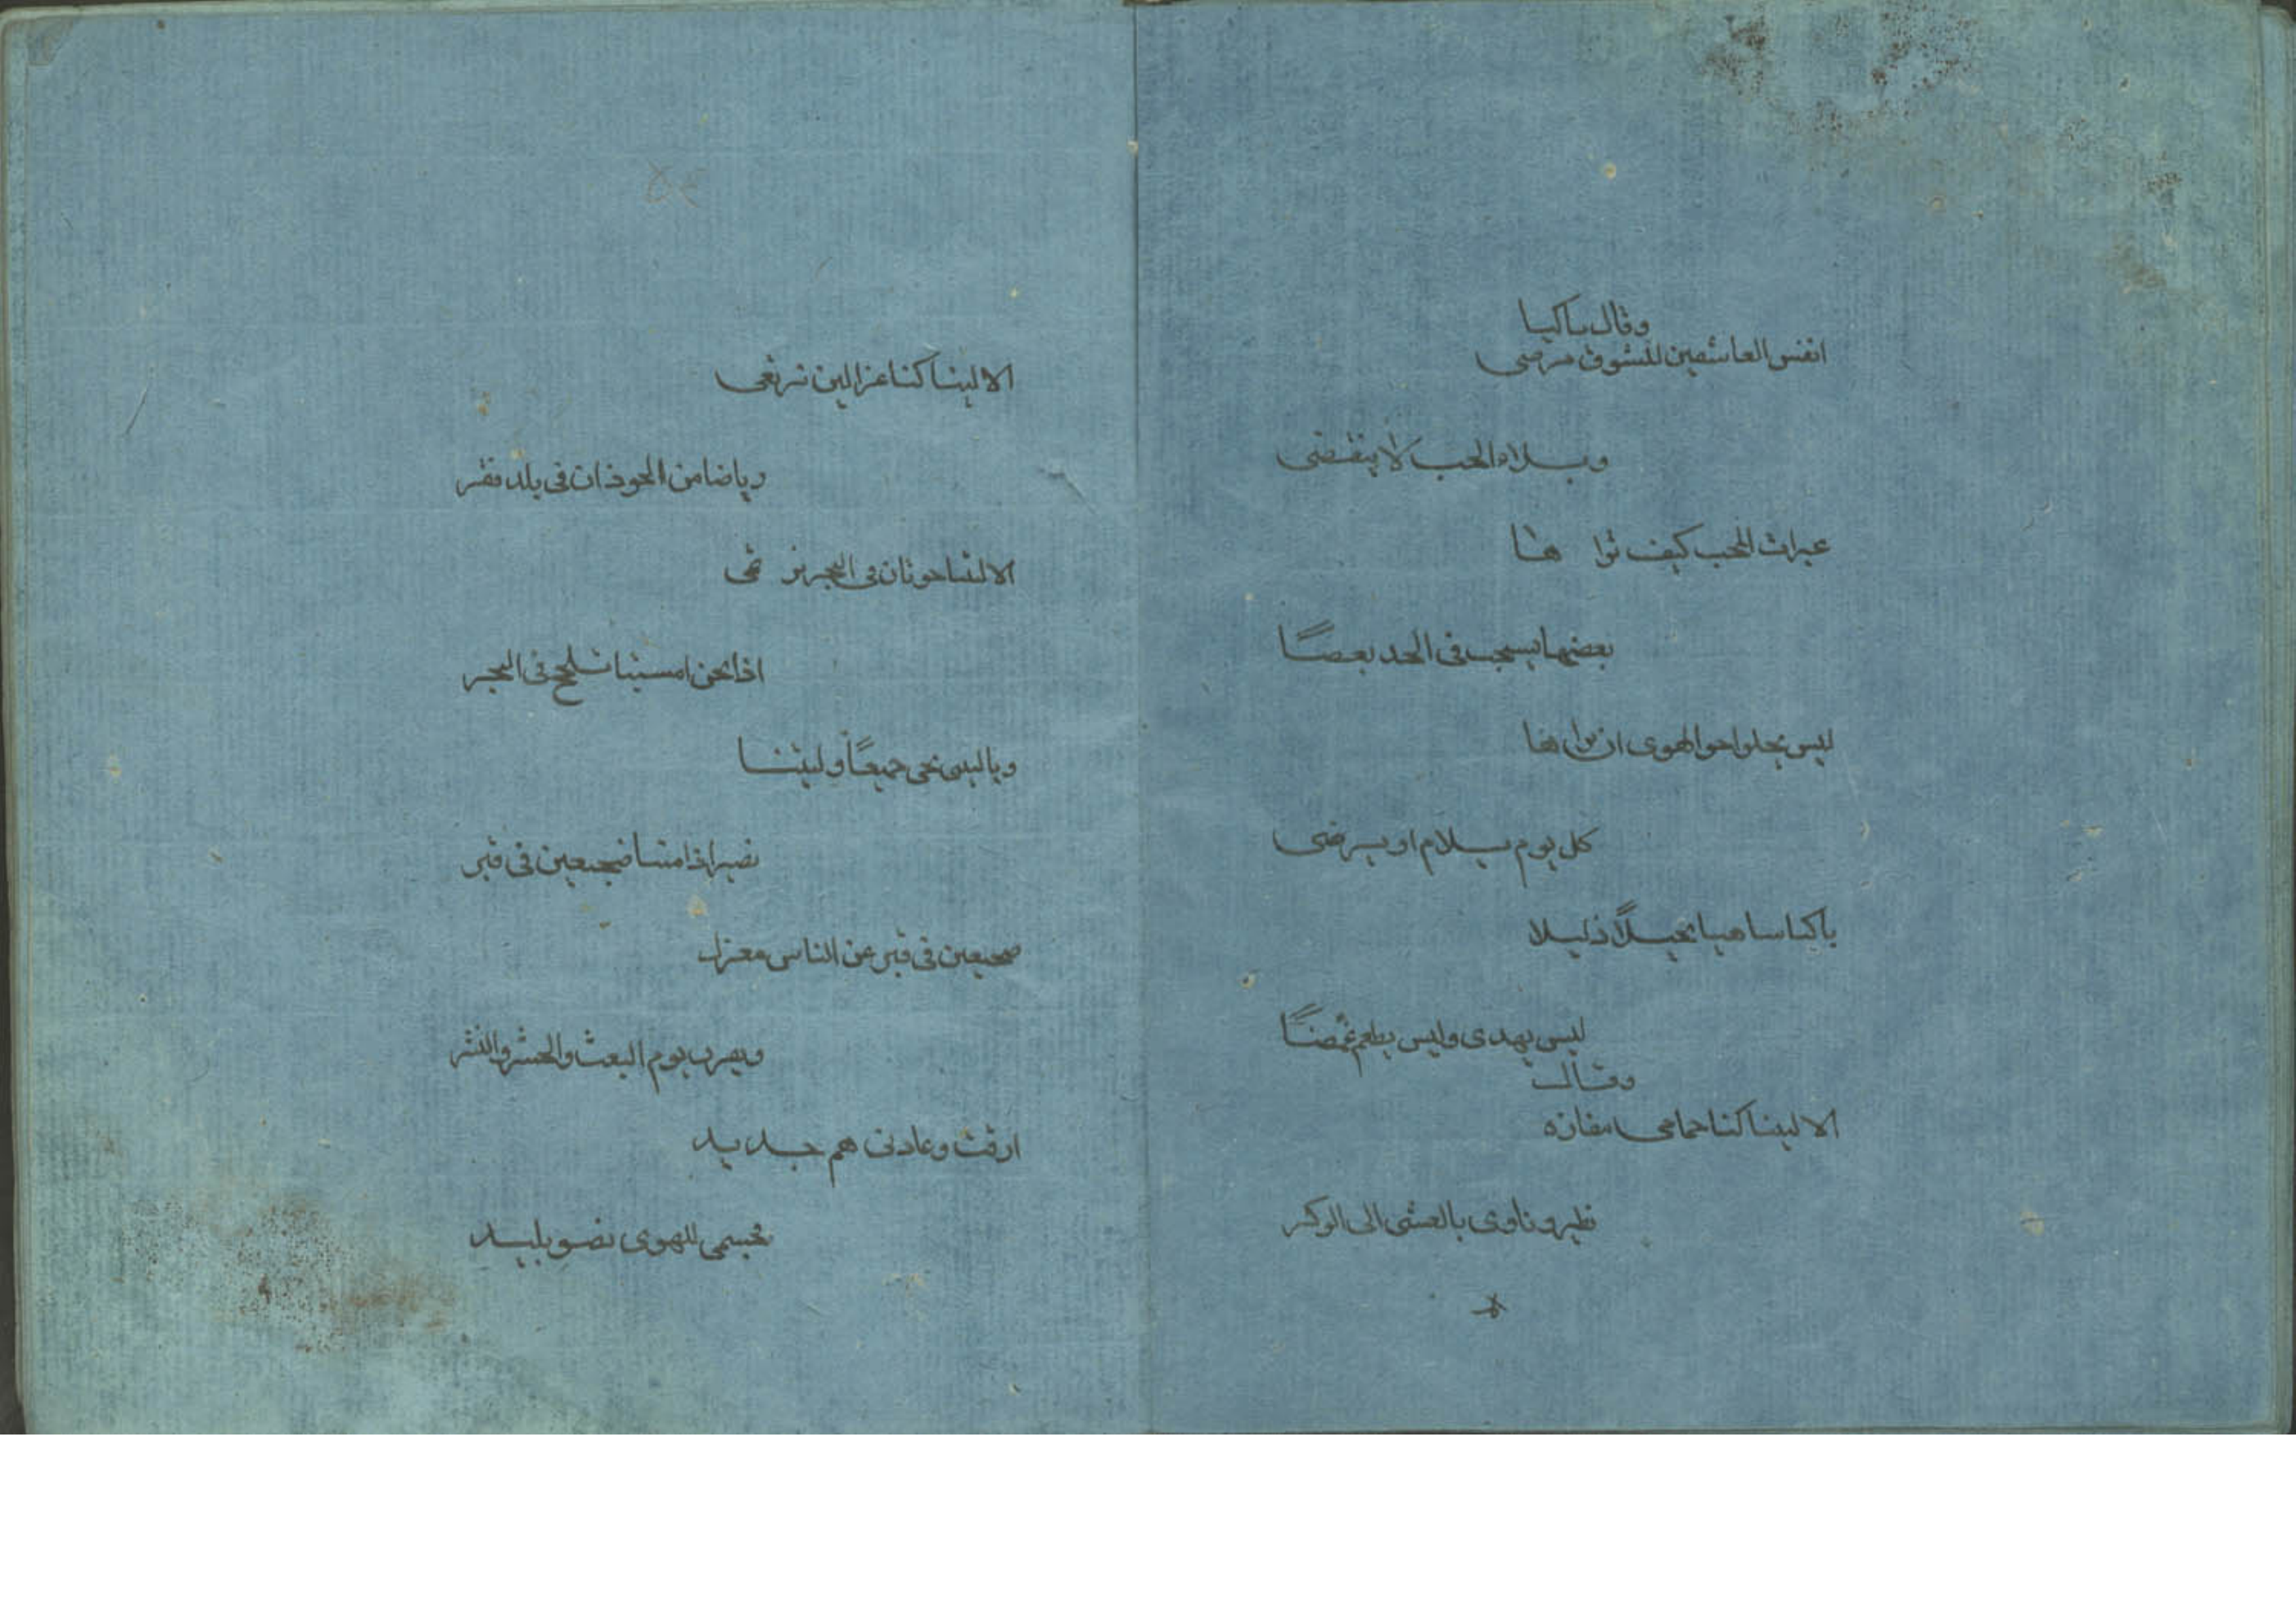 وقال باكيا
انفس العاشقين للشوق مرضى
وبلاء الحب لا ينقضى
عبرات المحب كيف تراها
بعضها يسحب فى الخد بعضًا
ليس يخلوا اخو الهوى ان تراها
كل يوم يلام او يرضى
باكيا ساهيا نحيلاً ذليلا
ليس يهدى وليس يطعم غمضًا
وقال
الا ليتنا كنا حمامى مفازه
نطير وناوى بالعشى الى الوكر
الا ليتنا كنا غزالين نرتعى
رياضا من الحوذان فى بلد قفر
الا ليتنا حوتان فى البحر نرتمى
اذا نحن امسينا نلجج فى البحر
ويا ليتنى نحى جميعًا وليتنا
نصير اذا متنا ضجيعين فى قبر
ضجيعين فى قبر عن الناس معزل
ويقرب يوم البعث والحشر والنشر
ارقت وعادنى هم جديد
فجسمى للهوى نضو بليد